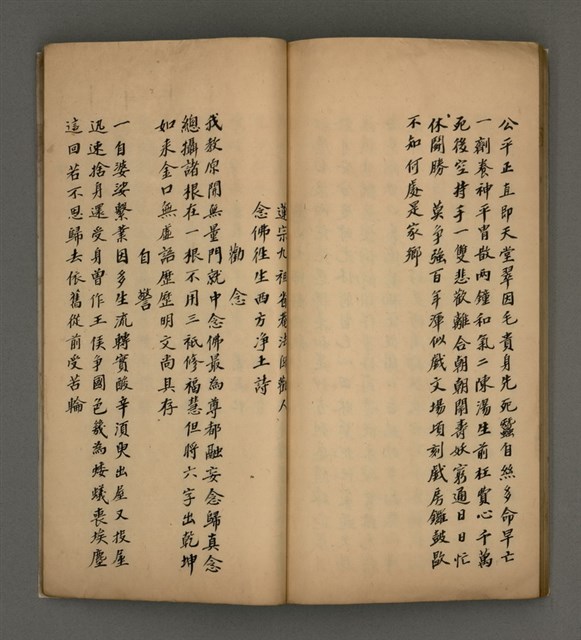 公平正直即天堂翠因毛貴身先死蠶自絲多命早亡
一劑養神平胃散两鐘和氣二陳湯生前枉費心千萬
死後空持手一雙悲歡離合朝朝鬧壽妖窮通日日忙
休鬪勝莫爭強百年渾似戲文場頃刻戲房鑼鼓歇
不知何處是家鄉
蓮宗九祖省菴法師勸人
念佛往生西方淨土詩
勸念
我教原開無量門就中念佛最為尊都融妄念歸真念
總攝諸根在一根不用三祇修福慧但將六字出乾坤
如来金口無虛語歴歴明文尚具存
自警
一自婆娑繫業因多生流轉實酸辛須臾出屋又投屋
迅速捨身還受身曾作王侯爭國色幾為螻蟻喪埃塵
這回若不思歸去依舊從前受苦輪